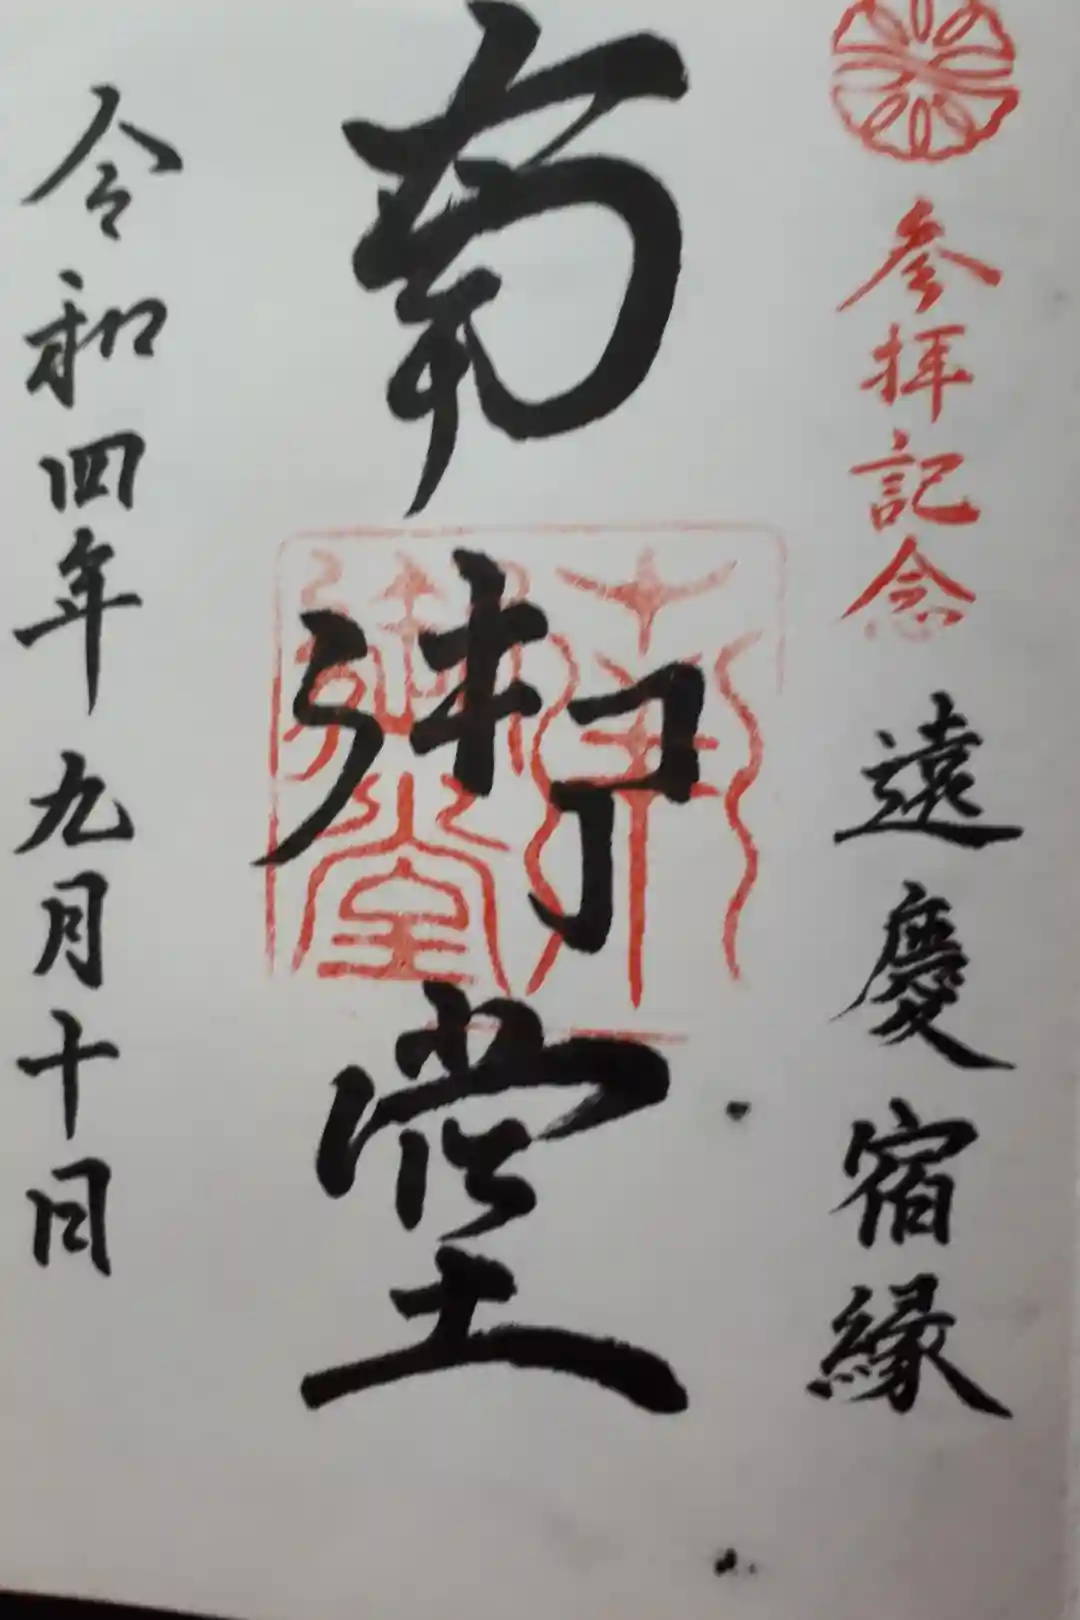 参拝記念 遠慶宿縁
南御堂
南御堂
令和四年九月十日